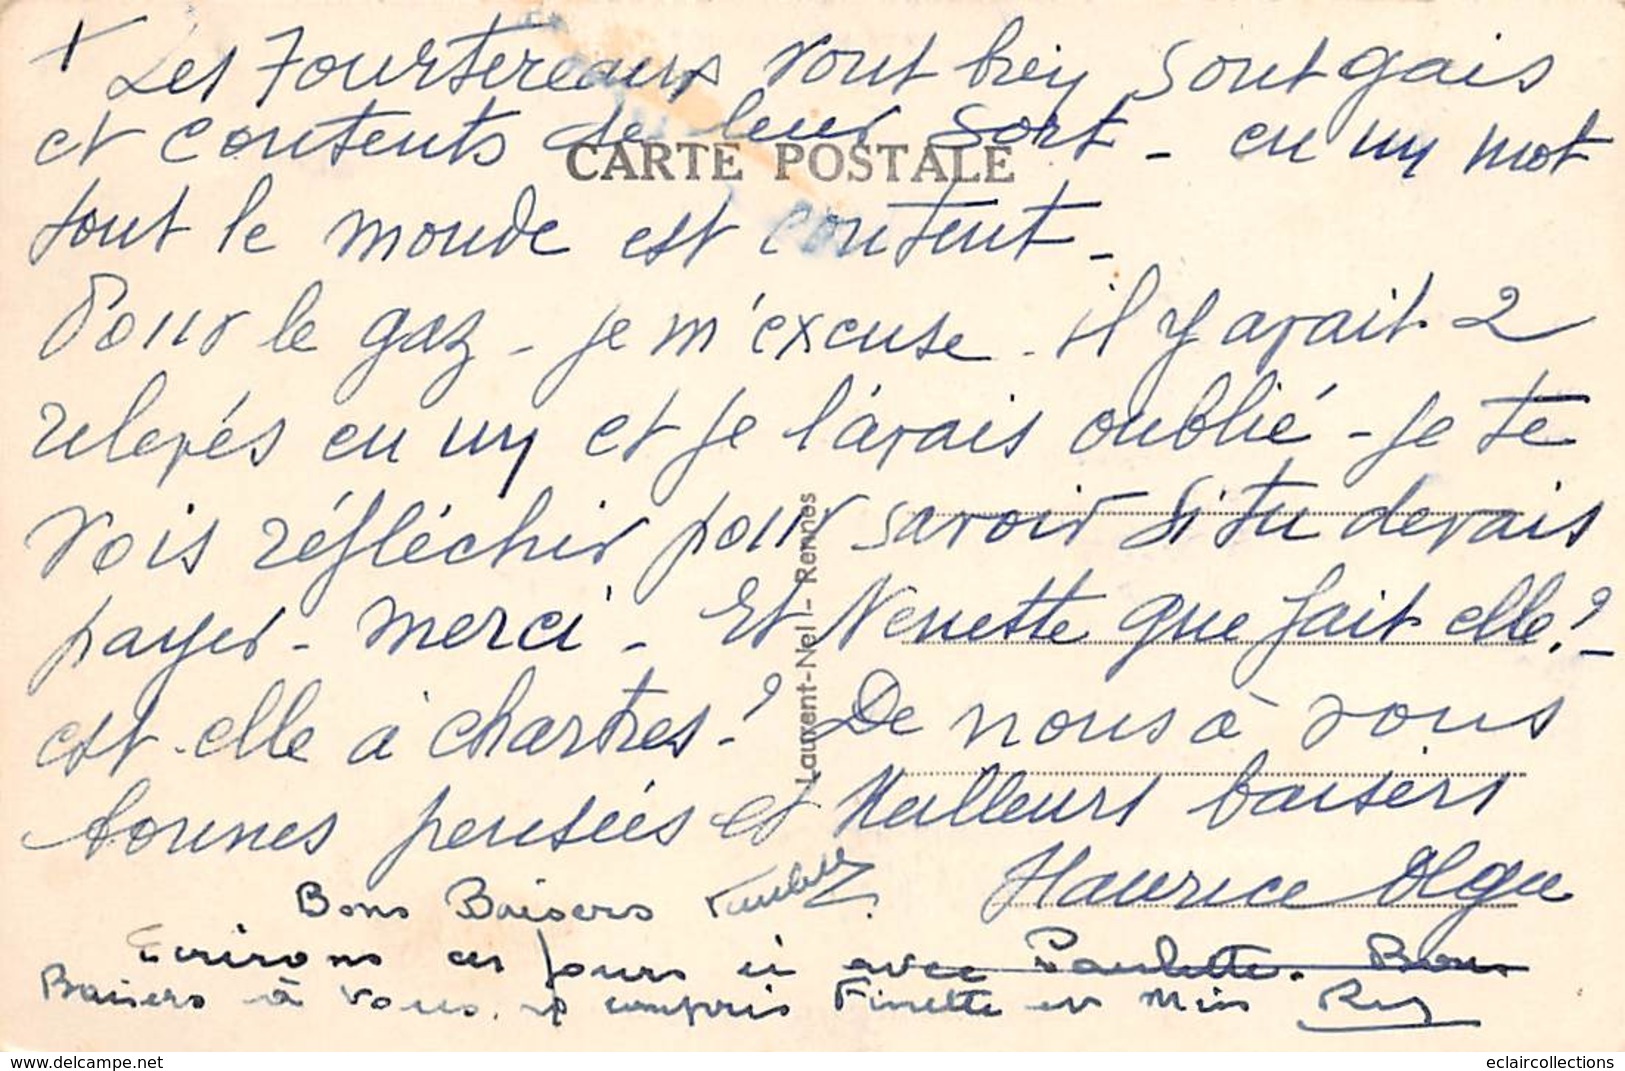 + Les Tourtereaux vont bien sont gais
et contents de leur sort - en un mot
CARTE POSTALE
tout le monde est content -
Pour le gaz - je m'excuse - il y avait 2
relevés en un et je l'avais oublié - je te
vois réfléchir pour savoir si tu devais
payer - merci - Et Nenette que fait elle? -
est elle à chartres? De nous à vous
bonnes pensées et Meilleurs baisers
Maurice Olga
Laurent-Nel - Rennes
Bons Baisers
Ecrirons ces jours ci avec Paulette. Bons
Baisers à vous, y compris Finette et Miss
eclaircollections